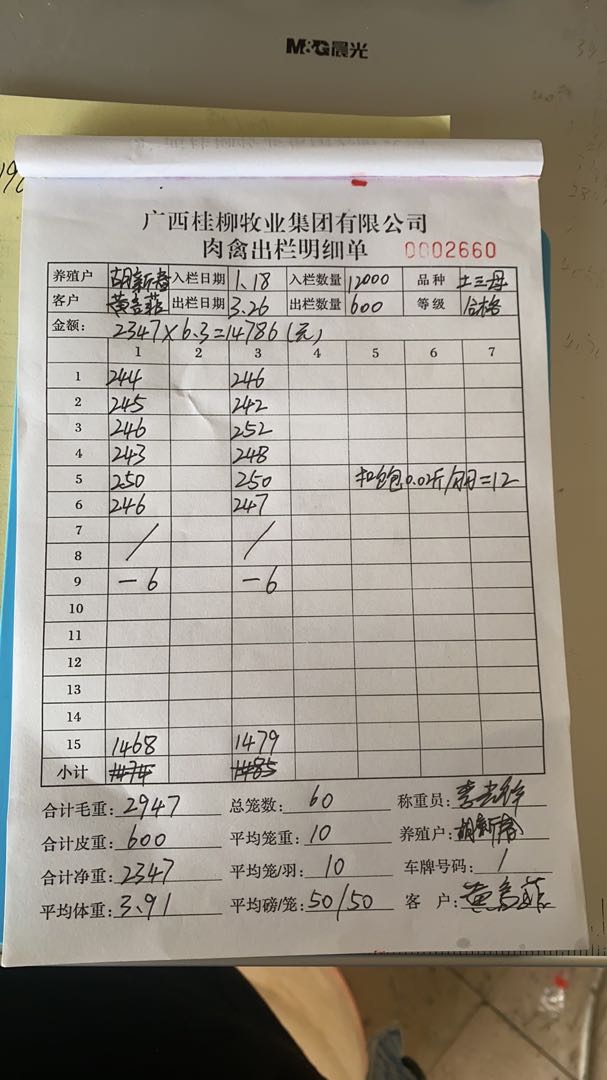 M&G晨光
广西桂柳牧业集团有限公司
肉禽出栏明细单 0002660
养殖户 胡新春 入栏日期 1.18 入栏数量 12000 品种 土三母
客户 出栏日期 3.26 出栏数量 600 等级 合格
金额: 2347×6.3=14786(元)
1 2 3 4 5 6 7
1 244 246
2 245 242
3 246 252
4 243 248
5 250 250 扣饱0.02斤/羽=12
6 246 247
7 / /
8
9 -6 -6
10
11
12
13
14
15 1468 1479
小计 1474 1485
合计毛重: 2947 总笼数: 60 称重员:
合计皮重: 600 平均笼重: 10 养殖户: 胡新春
合计净重: 2347 平均笼/羽: 10 车牌号码: 1
平均体重: 3.91 平均磅/笼: 50/50 客 户: